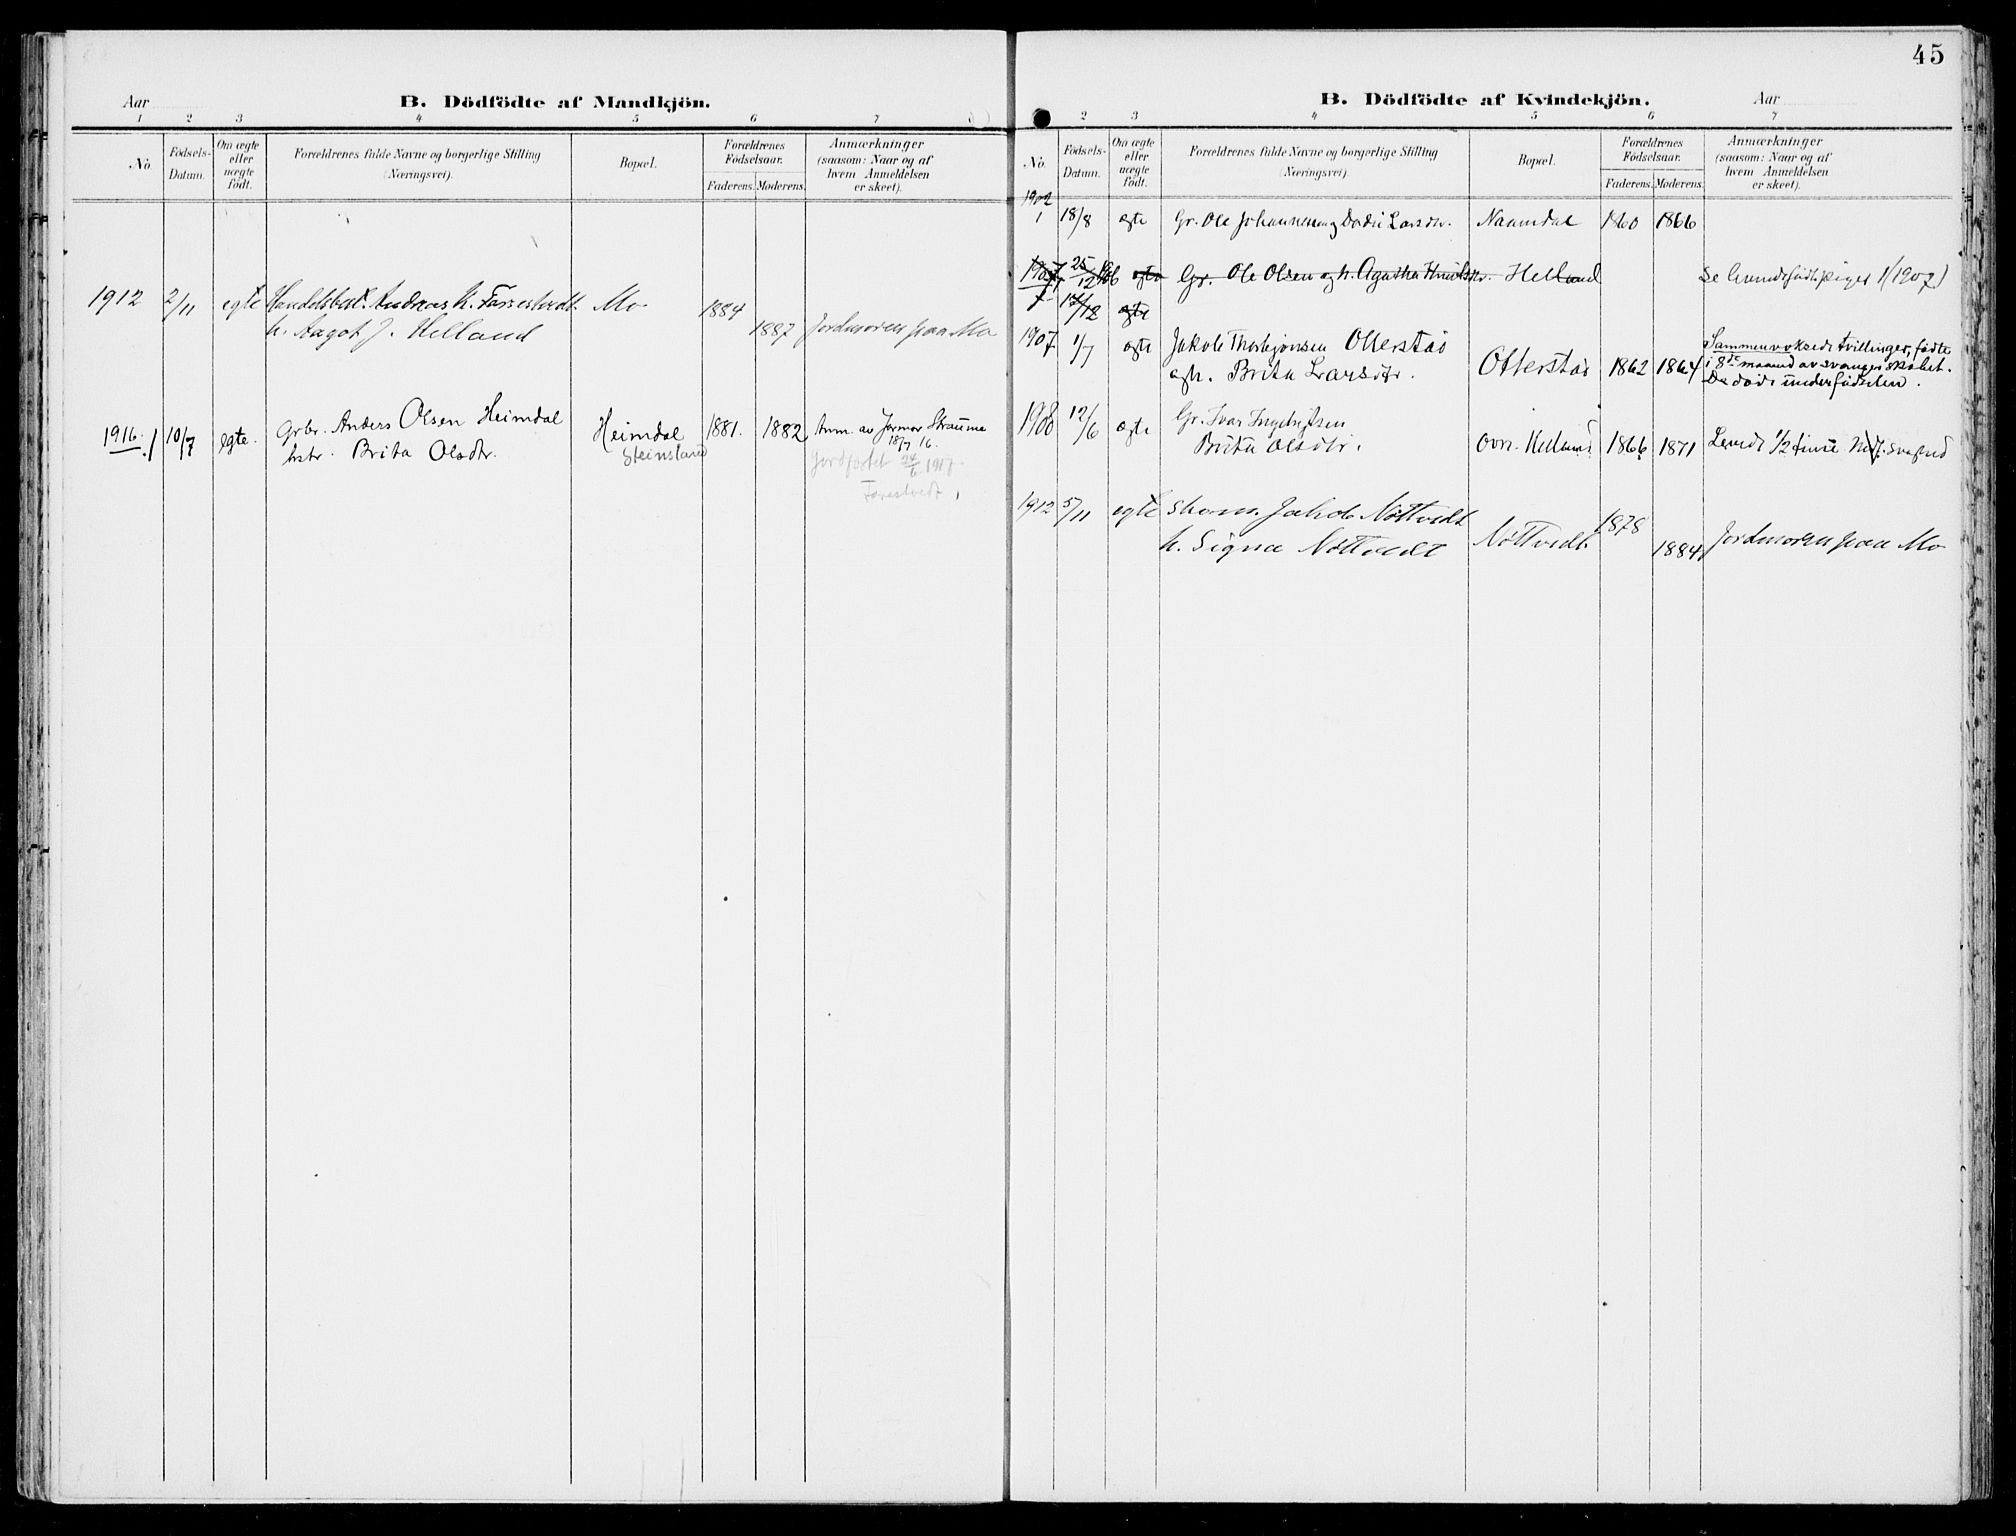 45
Aar
B. Dödfödte af Mandkjön.
1 2 3 4 5 6 7
No. Födsels-Datum. Om ægte eller uægte födt. Forældrenes fulde Navne og borgerlige Stilling (Næringsvei). Bopæl. Forældrenes Födselsaar. Faderens. Moderens. Anmærkninger (saasom: Naar og af hvem Anmeldelsen er skeet).
1912 2/11 egte Handelsbest. Andreas K. Farrestvedt Mo 1884
h. Aagot J. Helland 1887 Jordmoren paa Mo
1916. 1 10/7 egte. Grbr. Anders Olsen Heimdal Heimdal 1881. 1882 Anm. av Jormor Straume
hstr. Brita Olsdtr. Steinsland 18/7 16.
Jordfæstet 24/6 1917.
Farestvedt
B. Dödfödte af Kvindekjön.
Aar
2 3 4 5 6 7
No. Födsels-Datum. Om ægte eller uægte födt. Forældrenes fulde Navne og borgerlige Stilling (Næringsvei). Bopæl. Forældrenes Födselsaar. Faderens. Moderens. Anmærkninger (saasom: Naar og af hvem Anmeldelsen er skeet).
1902
1 18/8 ægte Gr. Ole Johannessen og Larsdtr. Naamdal 1860 1866
1907 25/12 06 ægte Gr. Ole Olsen og h. Agatha Knutsdtr. Helland se levendefødte piger 1/1907)
ægte
1907 1/7 ægte Jakob Thorbjønsen Otterstad Sammenvoksede tvillinger, fødte
og h. Brita Larsdtr. Otterstad 1862 1864 i 8de maaned av svangerskabet.
De døde under fødselen.
1908 12/6 ægte Gr. Ivar Ingebrigtsen
Brita Olsdtr. ovr. Helland 1866 1871 Levede 1/2 time
1912 5/11 egte Skom. Jakob Nøttvedt 1878
h. Signa Nøttvedt Nøttvedt 1884 Jordmoren paa Mo